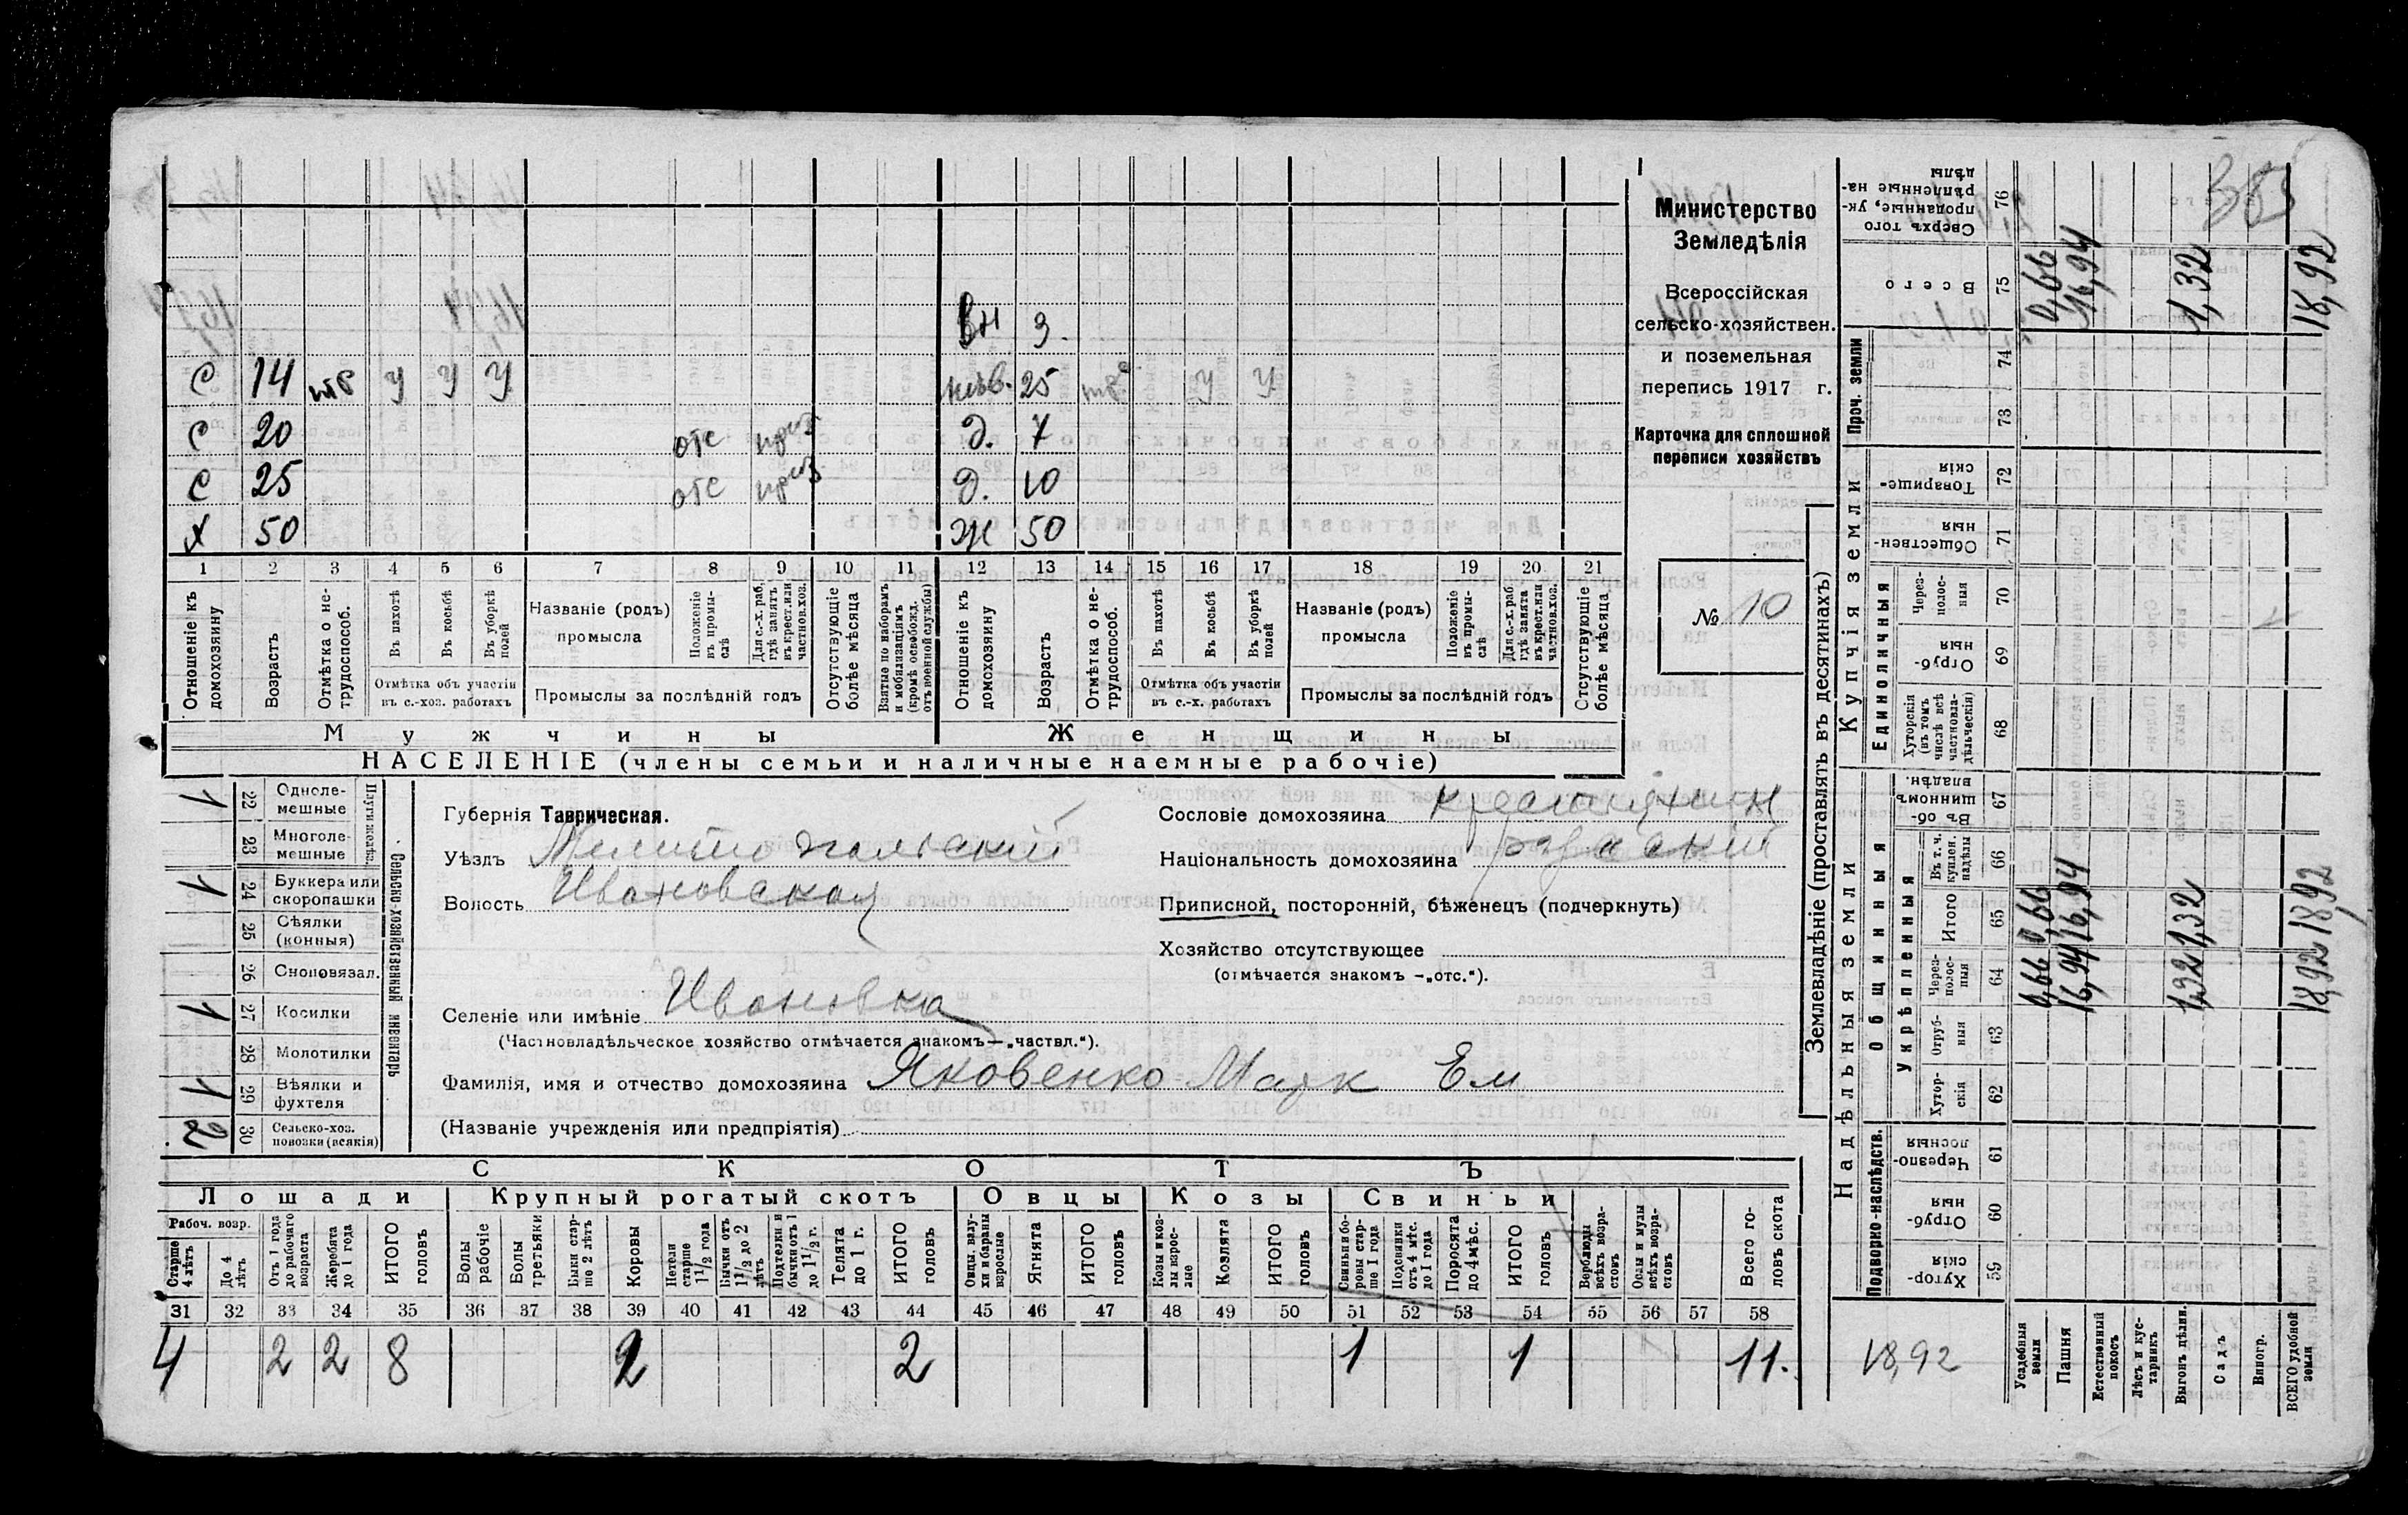 Министерство
Земледѣлія
Всероссійская
сельско-хозяйствен.
и поземельная
перепись 1917 г.
Карточка для сплошной
переписи хозяйствъ
№ 10
вн 3.
С 14 тр У У У нев. 25 тр. У У
С 20 отс Д. 7
С 25 отс Д. 10
Х 50 Ж 50
1 2 3 4 5 6 7 8 9 10 11 12 13 14 15 16 17 18 19 20 21
Отношеніе къ домохозяину
Возрастъ
Отмѣтка о не-трудоспособ.
Въ пахотѣ
Въ косьбѣ
Въ уборкѣ полей
Отмѣтка объ участіи
въ с.-хоз. работахъ
Названіе (родъ)
промысла
Положеніе въ промы-слѣ
Для с.-х. раб. гдѣ занятъ въ крест. или частнов. хоз.
Промыслы за послѣдній годъ
Отсутствующіе болѣе мѣсяца
Взятые по наборамъ и мобилизаціямъ (кромѣ освобожд. отъ военной службы)
Отношеніе къ домохозяину
Возрастъ
Отмѣтка о не-трудоспособ.
Въ пахотѣ
Въ косьбѣ
Въ уборкѣ полей
Отмѣтка объ участіи
въ с.-х. работахъ
Названіе (родъ)
промысла
Положеніе въ промы-слѣ
Для с.-х. раб. гдѣ занята въ крест. или частнов. хоз.
Промыслы за послѣдній годъ
Отсутствующіе болѣе мѣсяца
Мужчины Женщины
НАСЕЛЕНІЕ (члены семьи и наличные наемные рабочіе)
Сельско-хозяйственный инвентарь
Плуги желѣз.
1 22 Одноле-мешные
23 Многоле-мешные
1 24 Буккера или скоропашки
25 Сѣялки (конныя)
26 Сноповязал.
1 27 Косилки
28 Молотилки
1 29 Вѣялки и фухтеля
2 30 Сельско-хоз. повозки (всякія)
Губернія Таврическая.
Уѣздъ Мелитопольский
Волость Ивановская
Сословіе домохозяина крестьянин
Національность домохозяина русский
Приписной, посторонній, бѣженецъ (подчеркнуть)
Хозяйство отсутствующее
(отмѣчается знакомъ —„отс.“).
Селеніе или имѣніе Ивановка
(Частновладѣльческое хозяйство отмѣчается знакомъ—„частвл.“).
Фамилія, имя и отчество домохозяина Яковенко Марк Ем
(Названіе учрежденія или предпріятія)
СКОТЪ
Лошади Крупный рогатый скотъ Овцы Козы Свиньи
Рабоч. возр.
Старше 4 лѣтъ
До 4 лѣтъ
Отъ 1 года до рабочаго возраста
Жеребята до 1 года
ИТОГО головъ
Волы рабочіе
Волы третьяки
Быки стар-ше 2 лѣтъ
Коровы
Нетели старше 1 1/2 года
Бычки отъ 1 1/2 до 2 лѣтъ
Подтелки и бычки отъ 1 до 1 1/2 г.
Телята до 1 г.
ИТОГО головъ
Овцы, валу-хи и бараны взрослые
Ягнята
ИТОГО головъ
Козы и коз-лы взрос-лые
Козлята
ИТОГО головъ
Свиньи и бо-ровы стар-ше 1 года
Подсвинки отъ 4 мѣс. до 1 года
Поросята до 4 мѣс.
ИТОГО головъ
Верблюды всѣхъ возра-стовъ
Ослы и мулы всѣхъ возра-стовъ
Всего го-ловъ скота
31 32 33 34 35 36 37 38 39 40 41 42 43 44 45 46 47 48 49 50 51 52 53 54 55 56 57 58
4 2 2 8 2 2 1 1 11.
Землевладѣніе (проставлять въ десятинахъ)
Надѣльныя земли Купчія земли Проч. земли
Подворно-наслѣдств.
Общинныя
Укрѣпленныя
Единоличныя
59 Хутор-скія
60 Отруб-ныя
61 Черезпо-лосныя
62 Хутор-скія
63 Отруб-ныя
64 Через-полос-ныя
65 Итого
66 Въ т. ч. куплен. надѣлы
67 Въ об-щинномъ владѣн.
68 Хуторскія (въ томъ числѣ всѣ частновла-дѣльческія)
69 Отруб-ныя
70 Через-полос-ныя
71 Обществен-ныя
72 Товарище-скія
73
74
75 Всего
76 Сверхъ того проданные, ук-рѣпленные на-дѣлы
Усадебныя земли 0,66 0,66 0,66
Пашня 16,94 16,94 16,94
Естественный покосъ
Лѣсъ и кус-тарникъ
Выгонъ дѣлин. 1,32 1,32 1,32
Садъ
Виногр.
ВСЕГО удобной земли 18,92 18,92 18,92
18,92